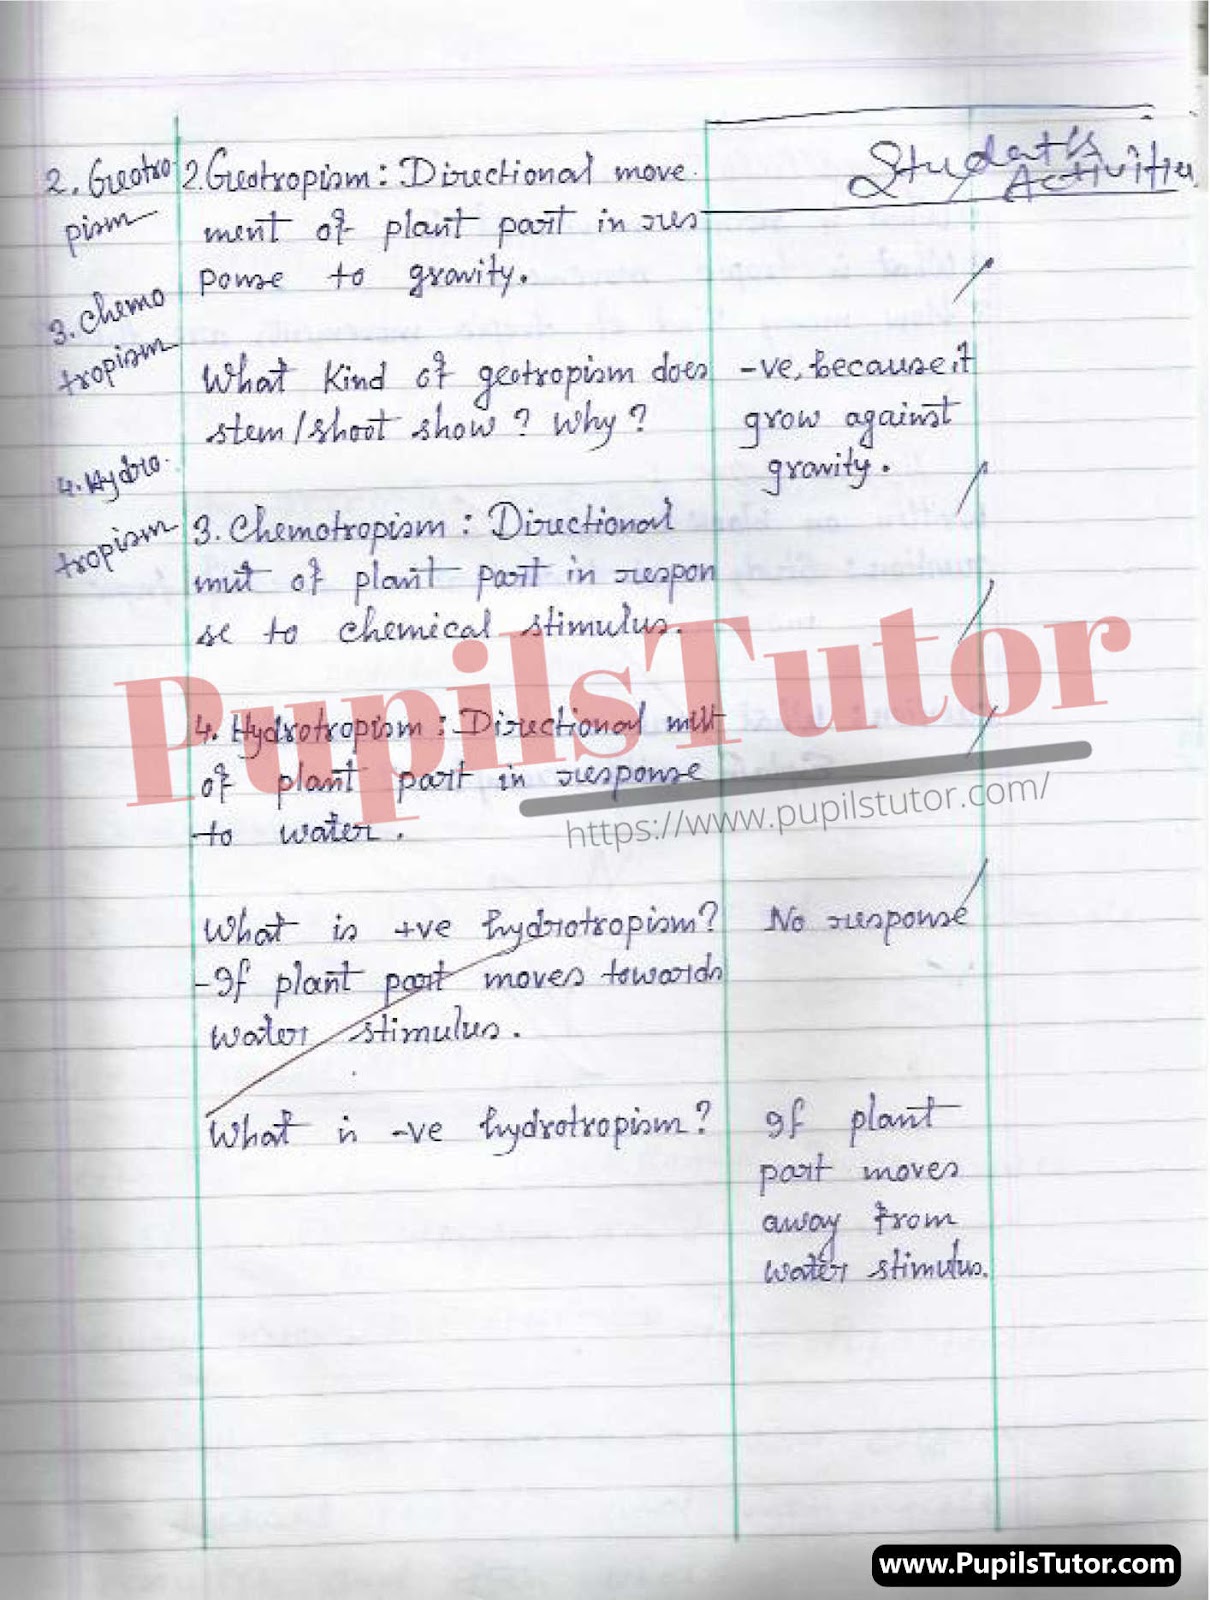 Student's
Activities
2. Geotro
pism
3. Chemo
tropism
4. Hydro.
tropism
2. Geotropism: Directional move.
ment of plant part in res
ponse to gravity.
What kind of geotropism does
stem/shoot show? Why?
-ve, because it
grow against
gravity.
3. Chemotropism: Directional
mut of plant part in respon
se to chemical stimulus.
4. Hydrotropism: Directional mut
of plant part in response
to water.
What is +ve hydrotropism?
No response
- If plant part moves towards
water stimulus.
What is -ve hydrotropism?
If plant
part moves
away from
water stimulus.
PupilsTutor
https://www.pupilstutor.com/
www.PupilsTutor.com